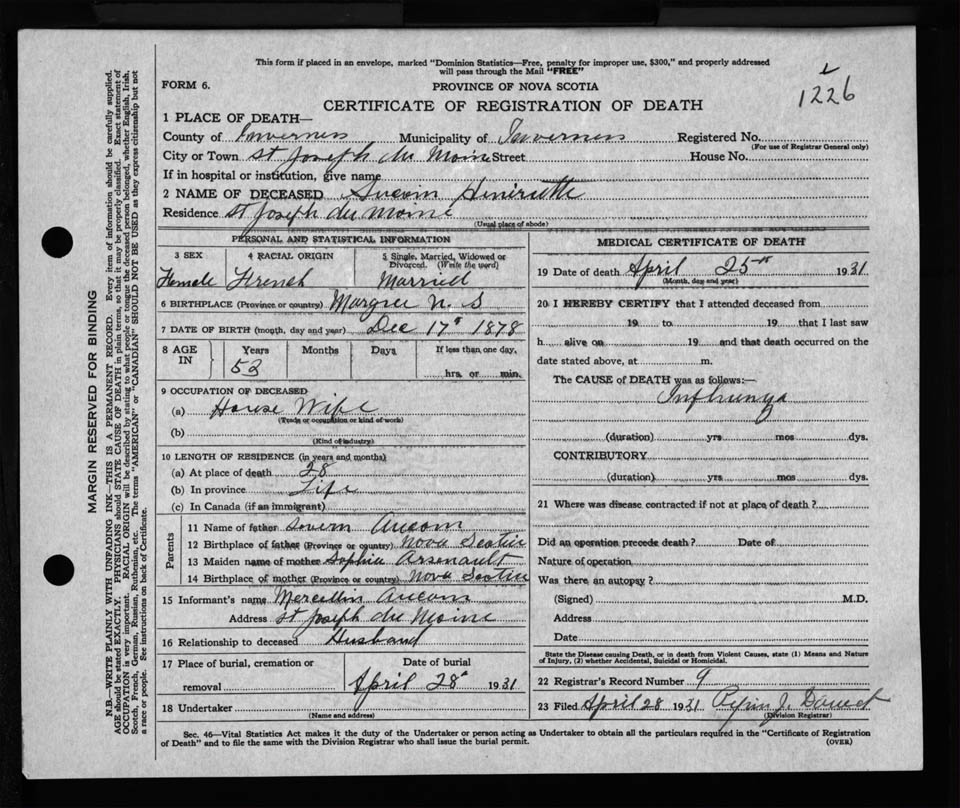 This form if placed in an envelope, marked "Dominion Statistics—Free, penalty for improper use, $300," and properly addressed
will pass through the Mail "FREE"
FORM 6.
PROVINCE OF NOVA SCOTIA
1226
CERTIFICATE OF REGISTRATION OF DEATH
1 PLACE OF DEATH—
County of Inverness Municipality of Inverness Registered No.
(For use of Registrar General only)
City or Town St Joseph du Moine Street House No.
If in hospital or institution, give name
2 NAME OF DECEASED Aucoin
Residence St Joseph du Moine
(Usual place of abode)
PERSONAL AND STATISTICAL INFORMATION
3 SEX 4 RACIAL ORIGIN 5 Single, Married, Widowed or
Divorced. (Write the word)
Female French Married
6 BIRTHPLACE (Province or country) Margree N. S
7 DATE OF BIRTH (month, day and year) Dec 17th 1878
8 AGE IN Years Months Days If less than one day,
52 hrs. or min.
9 OCCUPATION OF DECEASED
(a) House Wife
(Trade or occupation or kind of work)
(b)
(Kind of industry)
10 LENGTH OF RESIDENCE (in years and months)
(a) At place of death 28
(b) In province Life
(c) In Canada (if an immigrant)
Parents
11 Name of father Aucoin
12 Birthplace of father (Province or country) Nova Scotia
13 Maiden name of mother Sophie Arsenault
14 Birthplace of mother (Province or country) Nova Scotia
15 Informant's name Mercellin Aucoin
Address St Joseph du Moine
16 Relationship to deceased Husband
17 Place of burial, cremation or Date of burial
removal April 28th 1931
18 Undertaker
(Name and address)
MEDICAL CERTIFICATE OF DEATH
19 Date of death April 25th 1931
(Month, day and year)
20 I HEREBY CERTIFY that I attended deceased from
19 to 19 that I last saw
h alive on 19 and that death occurred on the
date stated above, at m.
The CAUSE of DEATH was as follows:—
Influenza
(duration) yrs mos dys.
CONTRIBUTORY
(duration) yrs mos dys.
21 Where was disease contracted if not at place of death?
Did an operation precede death? Date of
Nature of operation
Was there an autopsy?
(Signed) M.D.
Address
Date
State the Disease causing Death, or in death from Violent Causes, state (1) Means and Nature
of Injury, (2) whether Accidental, Suicidal or Homicidal.
22 Registrar's Record Number 9
23 Filed April 28 1931 J.
(Division Registrar)
Sec. 46—Vital Statistics Act makes it the duty of the Undertaker or person acting as Undertaker to obtain all the particulars required in the "Certificate of Registration
of Death" and to file the same with the Division Registrar who shall issue the burial permit.
(OVER)
MARGIN RESERVED FOR BINDING
N.B.—WRITE PLAINLY WITH UNFADING INK—THIS IS A PERMANENT RECORD. Every item of information should be carefully supplied.
AGE should be stated EXACTLY. PHYSICIANS should STATE CAUSE OF DEATH in plain terms, so that it may be properly classified. Exact statement of
OCCUPATION is very important. RACIAL ORIGIN will be described by stating to what people or tongue the deceased person belonged, whether English, Irish,
Scotch, French, German, Russian, Ruthenian, etc. The terms "AMERICAN" or "CANADIAN" SHOULD NOT BE USED as they express citizenship but not
a race or people. See instructions on back of Certificate.